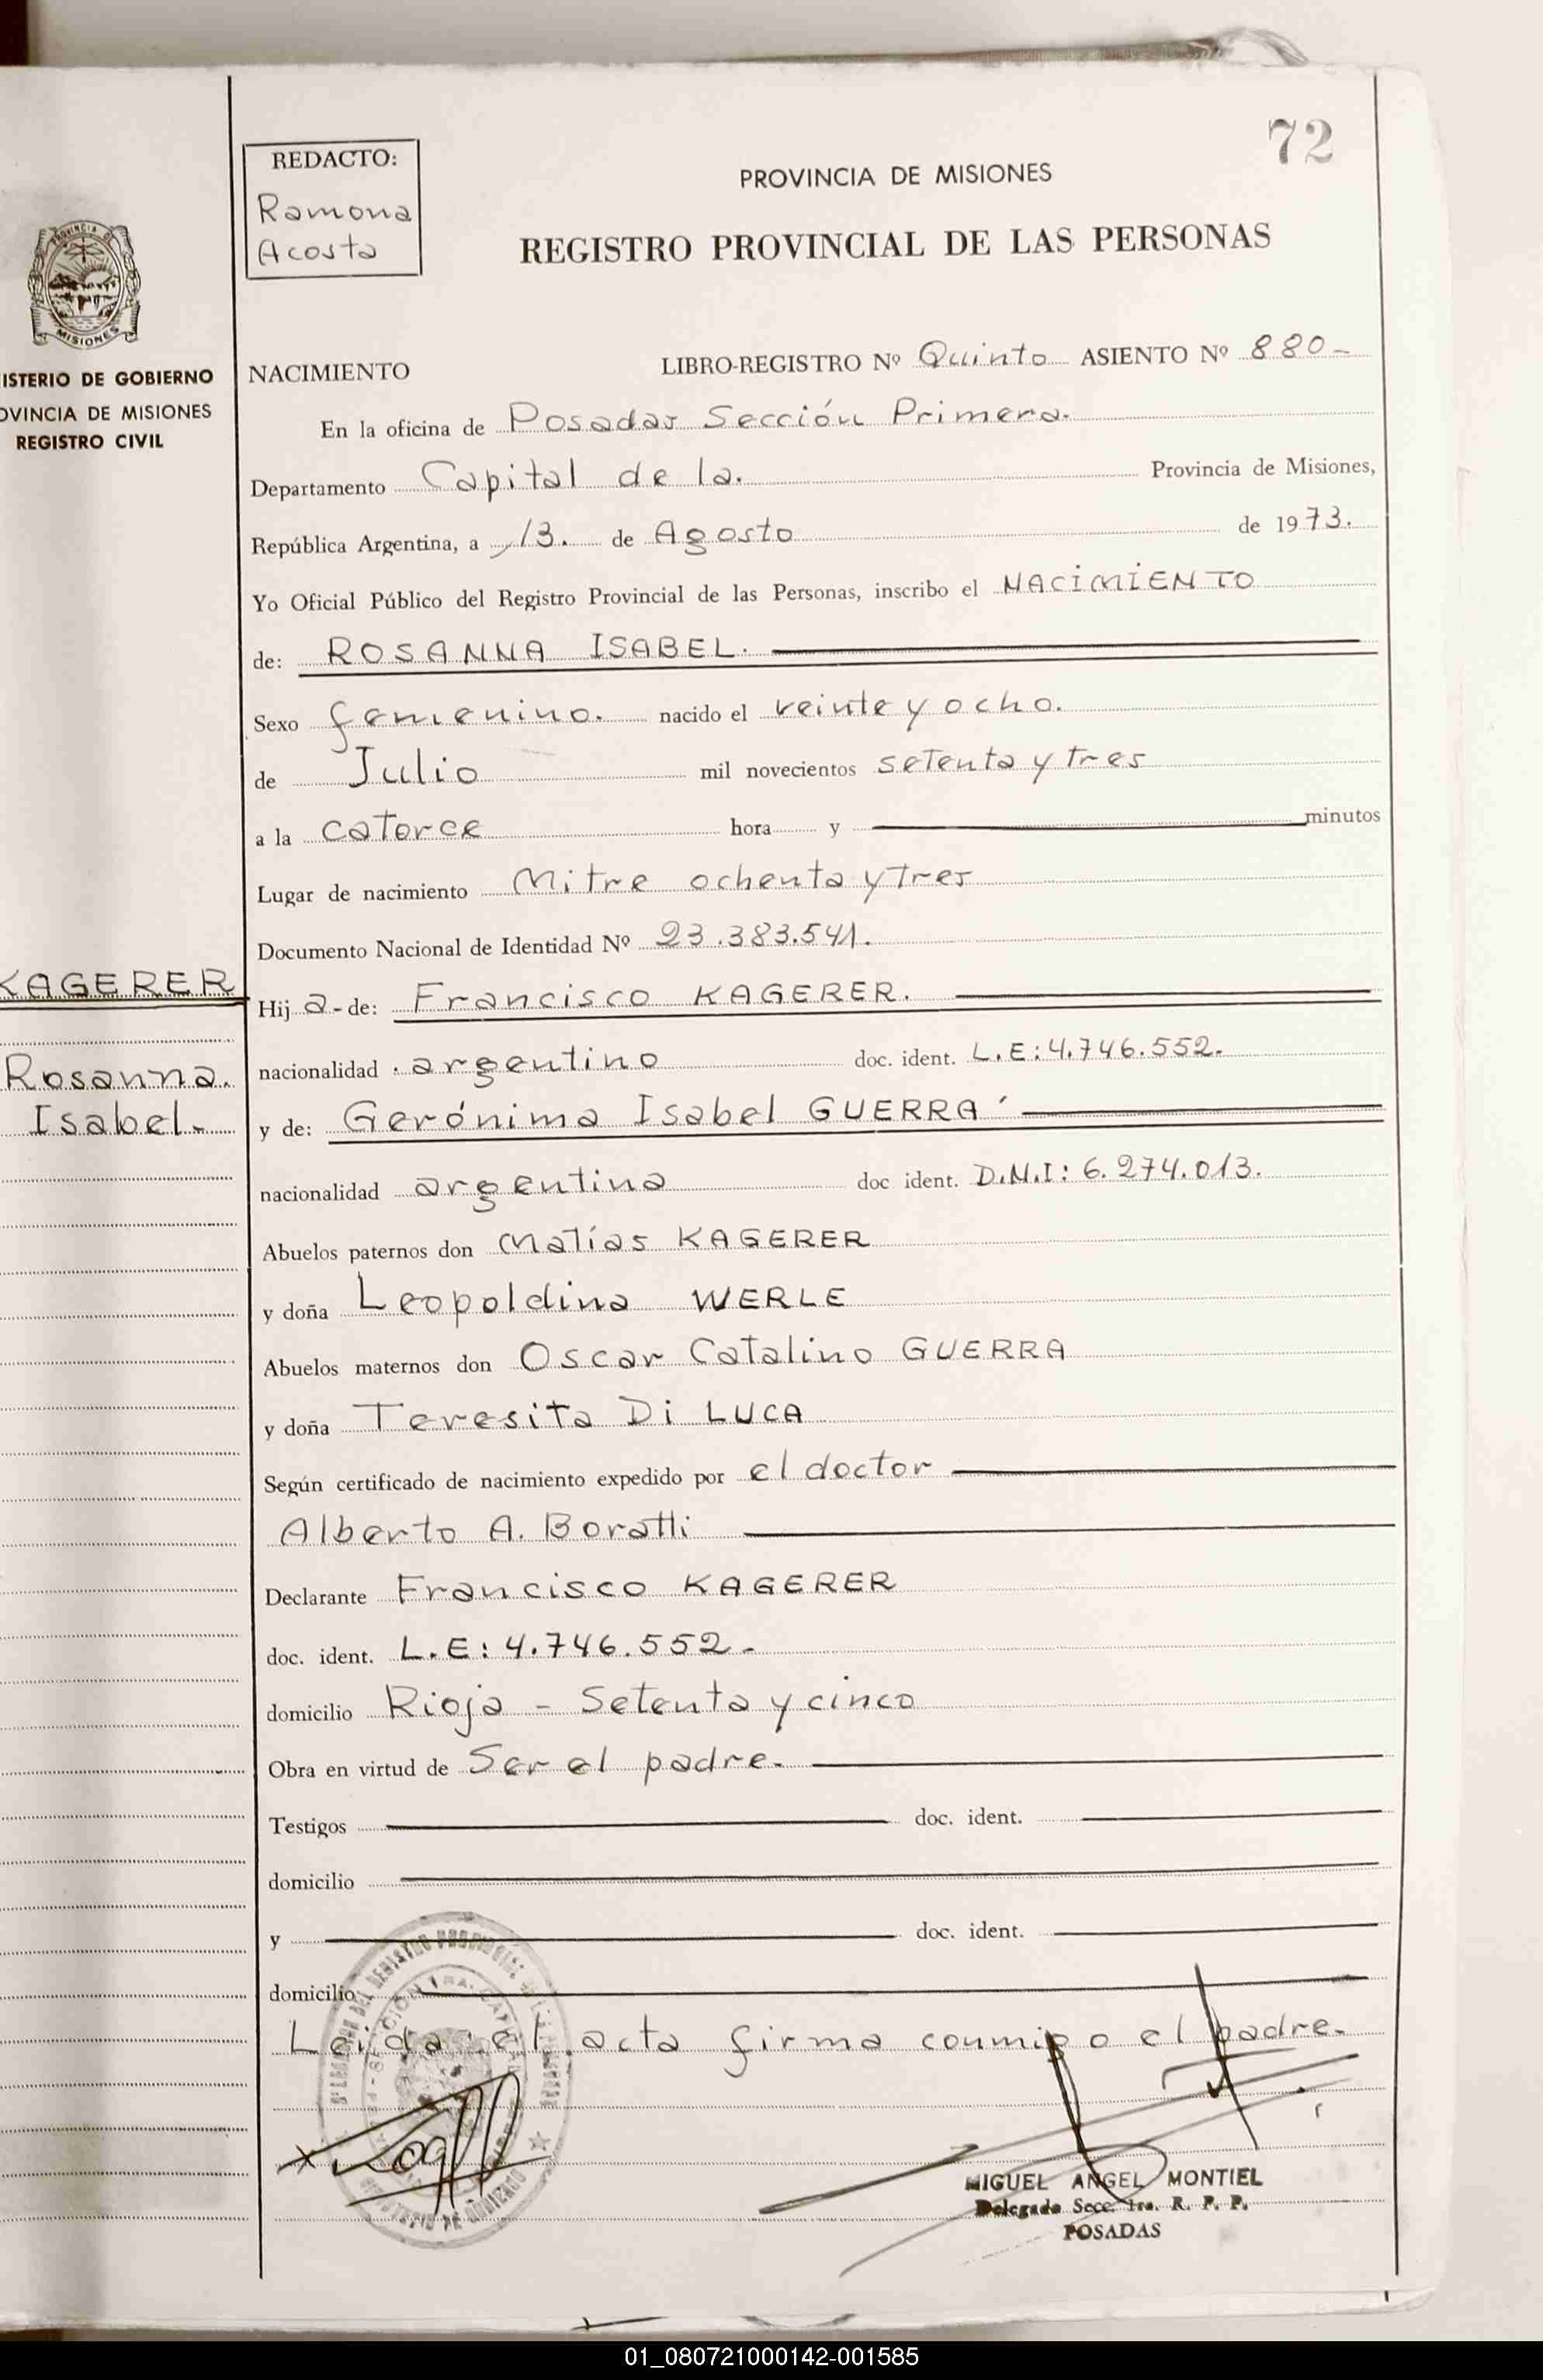 72
REDACTO:
Ramona
Acosta
PROVINCIA DE MISIONES
REGISTRO PROVINCIAL DE LAS PERSONAS
MISIONES
ISTERIO DE GOBIERNO
OVINCIA DE MISIONES
REGISTRO CIVIL
NACIMIENTO LIBRO-REGISTRO Nº Quinto ASIENTO Nº 880-
En la oficina de Posadas Sección Primera.
Departamento Capital de la. Provincia de Misiones,
República Argentina, a 13. de Agosto de 1973.
Yo Oficial Público del Registro Provincial de las Personas, inscribo el NACIMIENTO
de: ROSANNA ISABEL.
Sexo femenino. nacido el veinte y ocho.
de Julio mil novecientos setenta y tres
a la catorce hora y minutos
Lugar de nacimiento Mitre ochenta y tres
Documento Nacional de Identidad Nº 23.383.541.
KAGERER
Hija-de: Francisco KAGERER.
Rosanna.
Isabel.-
nacionalidad argentino doc. ident. L.E:4.746.552.
y de: Gerónima Isabel GUERRA
nacionalidad argentina doc ident. D.N.I: 6.274.013.
Abuelos paternos don Matías KAGERER
y doña Leopoldina WERLE
Abuelos maternos don Oscar Catalino GUERRA
y doña Teresita Di LUCA
Según certificado de nacimiento expedido por el doctor
Alberto A. Boratti
Declarante Francisco KAGERER
doc. ident. L.E: 4.746.552.-
domicilio Rioja - Setenta y cinco
Obra en virtud de Ser el padre.-
Testigos doc. ident.
domicilio
y doc. ident.
domicilio
Leída el acta firma conmigo el padre.-
MIGUEL ANGEL MONTIEL
Delegado Secc. 1ra. R. P. P.
POSADAS
01_080721000142-001585